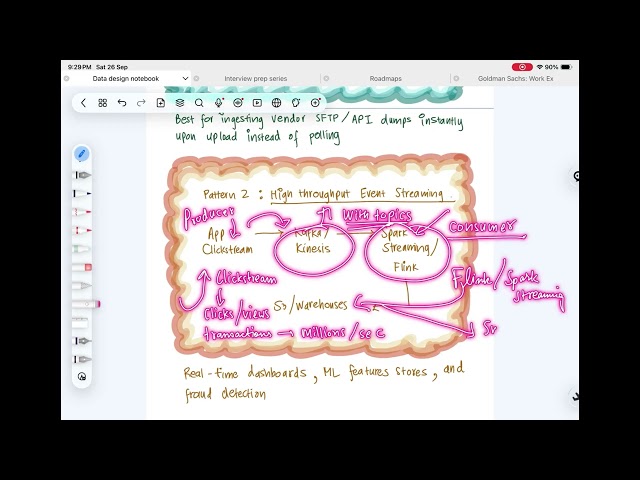 9:29 PM Sat 26 Sep
90%
Data design notebook
Interview prep series
Roadmaps
Goldman Sachs: Work Ex
Best for ingesting vendor SFTP/API dumps instantly
upon upload instead of polling
Pattern 2 : High throughput Event Streaming
Producer
With topics
Consumer
App
Clickstream
Kafka/
Kinesis
Spark
Streaming/
Flink
Clickstream
Flink/Spark
Streaming
S3/Warehouses
Clicks/views
transactions → Millions/sec
Real-time dashboards, ML features stores, and
fraud detection